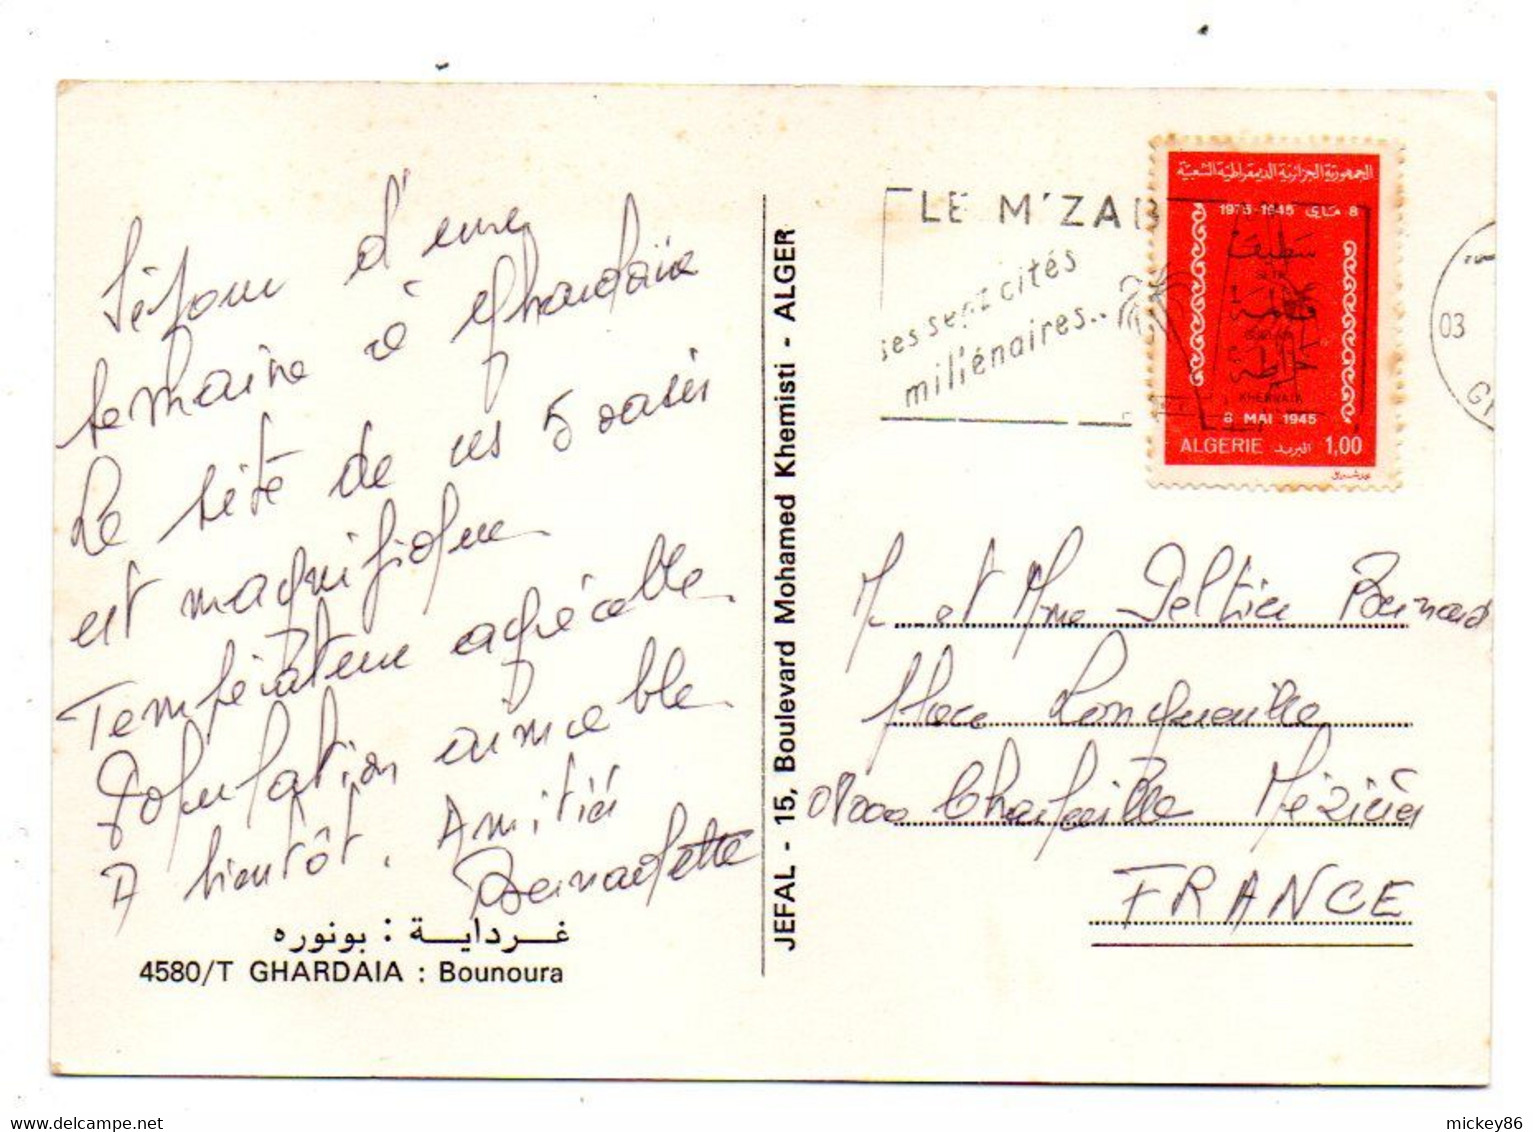 Séjour d'une
semaine à Ghardaïa
Le site de ces 5 oasis
est magnifique
Température agréable
Population aimable
A bientôt. Amitiés
Bernadette
غرداية : بونوره
4580/T GHARDAIA : Bounoura
JEFAL - 15, Boulevard Mohamed Khemisti - ALGER
LE M'ZAB
ses sept cités
millénaires..
الجمهورية الجزائرية الديمقراطية الشعبية
1975-1945 8 ماي
سطيف
SETIF
قالمة
GUELMA
خراطة
KHERRATA
8 MAI 1945
ALGERIE البريد 1,00
03
M. et Mme Peltier Bernard
Place Longueville
08000 Charleville Mézières
FRANCE
delcampe.net
mickey86